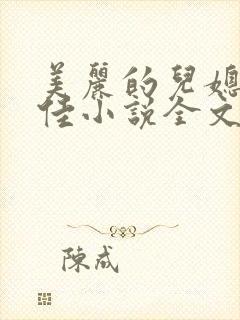 美麗的兒媳
佳小說全文
陳成